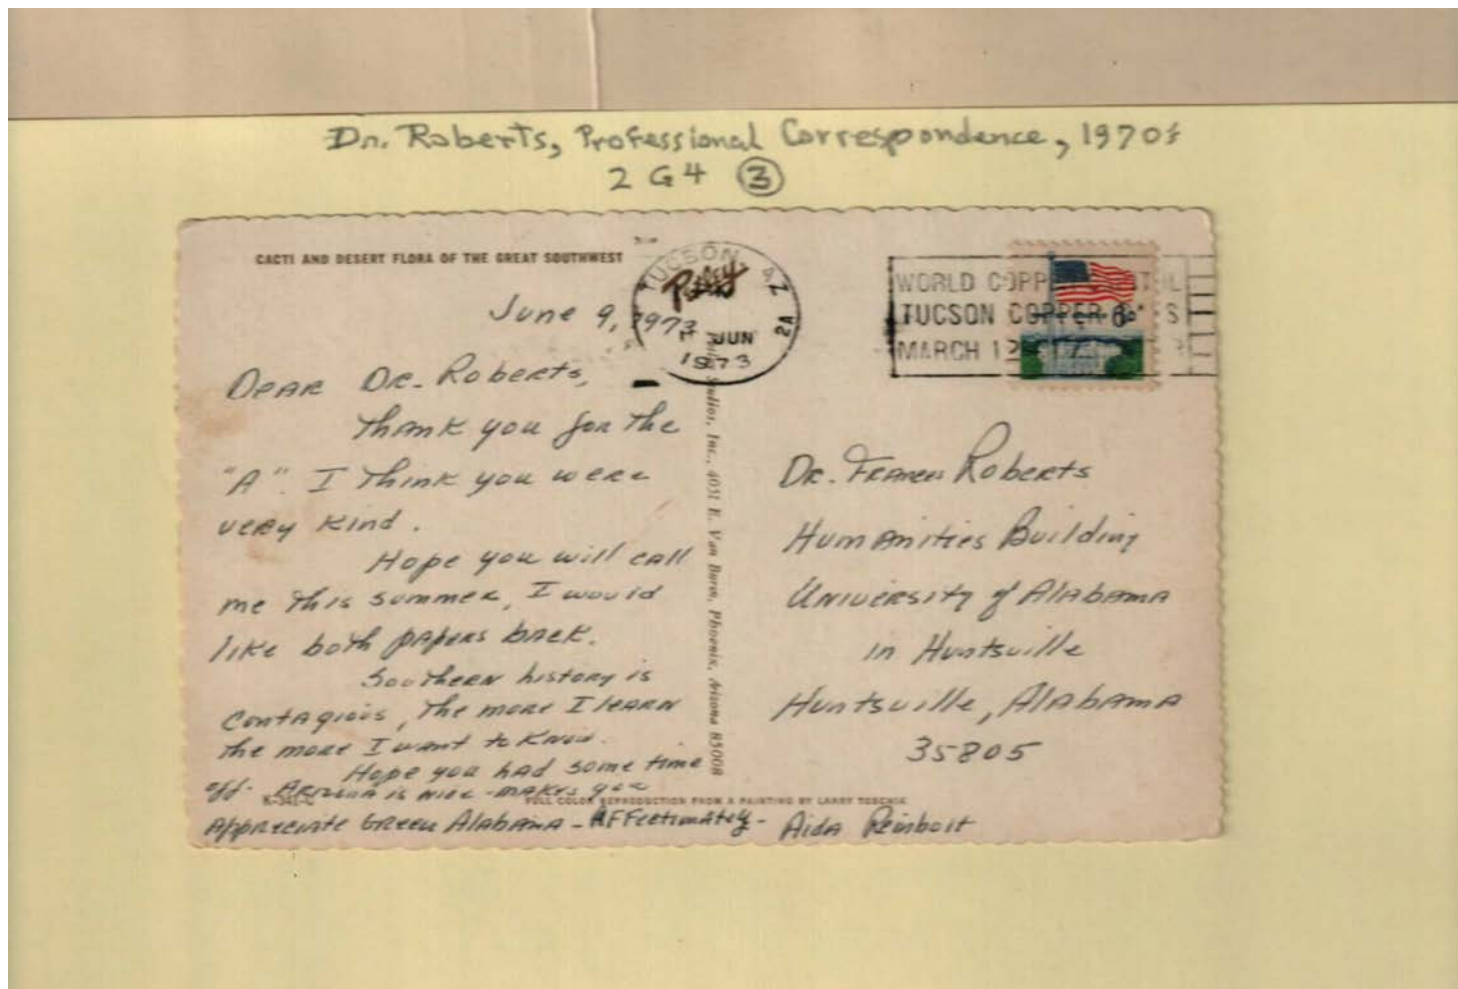 Dr. Roberts, Professional Correspondence, 1970's
2 G4 3
CACTI AND DESERT FLORA OF THE GREAT SOUTHWEST
TUCSON, AZ
JUN
2A
1973
WORLD COPPER
TUCSON COPPER
MARCH 12
6¢
June 9, 1973
Dear Dr. Roberts,
Thank you for the
"A". I think you were
very kind.
Hope you will call
me this summer, I would
like both papers back.
Southern history is
contagious, the more I learn
the more I want to know.
Hope you had some time
off. Arizona is nice - makes you
appreciate green Alabama - Affectionately - Aida
K-341-C
FULL COLOR REPRODUCTION FROM A PAINTING BY LARRY
Studios, Inc., 4031 E. Van Buren, Phoenix, Arizona 85008
Dr. Frances Roberts
Humanities Building
University of Alabama
in Huntsville
Huntsville, Alabama
35805